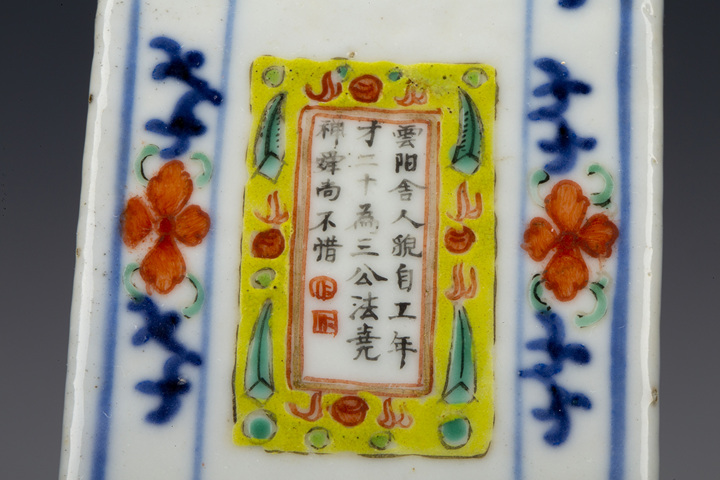 雲阳舍人貌自工年
才二十為三公法堯
禅舜尚不惜